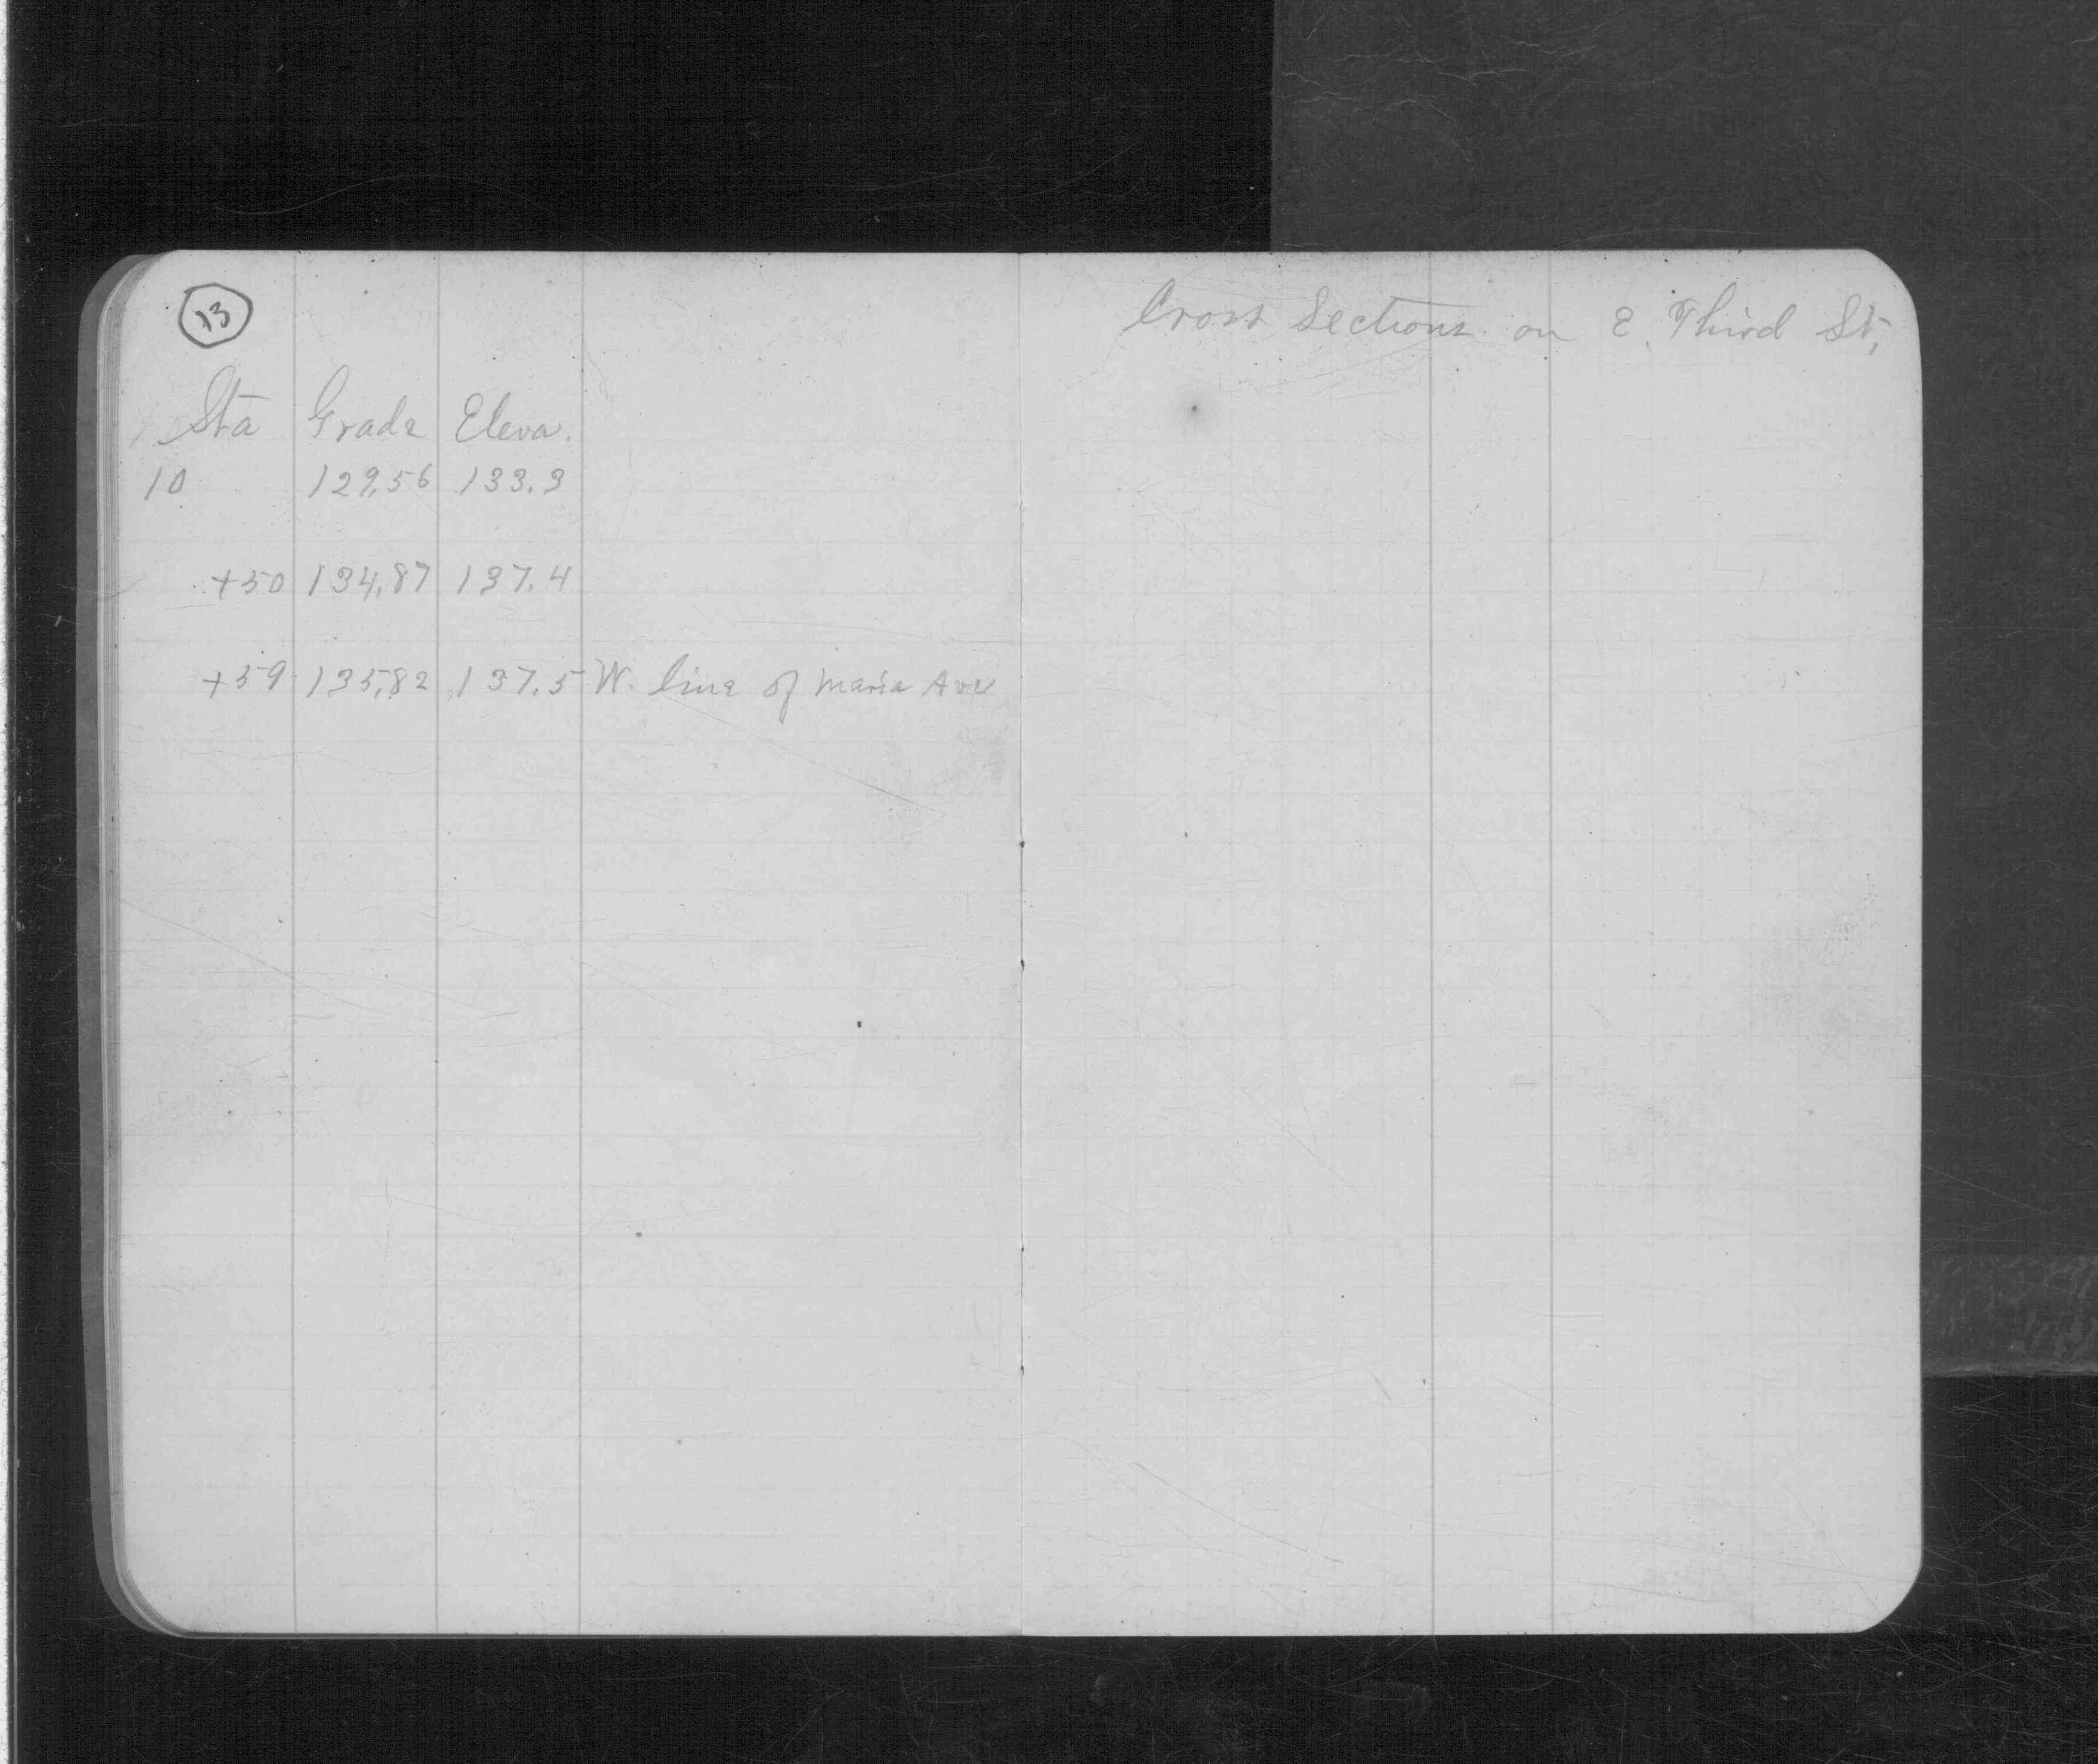 13
Cross Sections on E. Third St,
Sta Grade Eleva.
10 129.56 133.3
+50 134.87 137.4
+59 135.82 137.5 W. line of Maria Ave